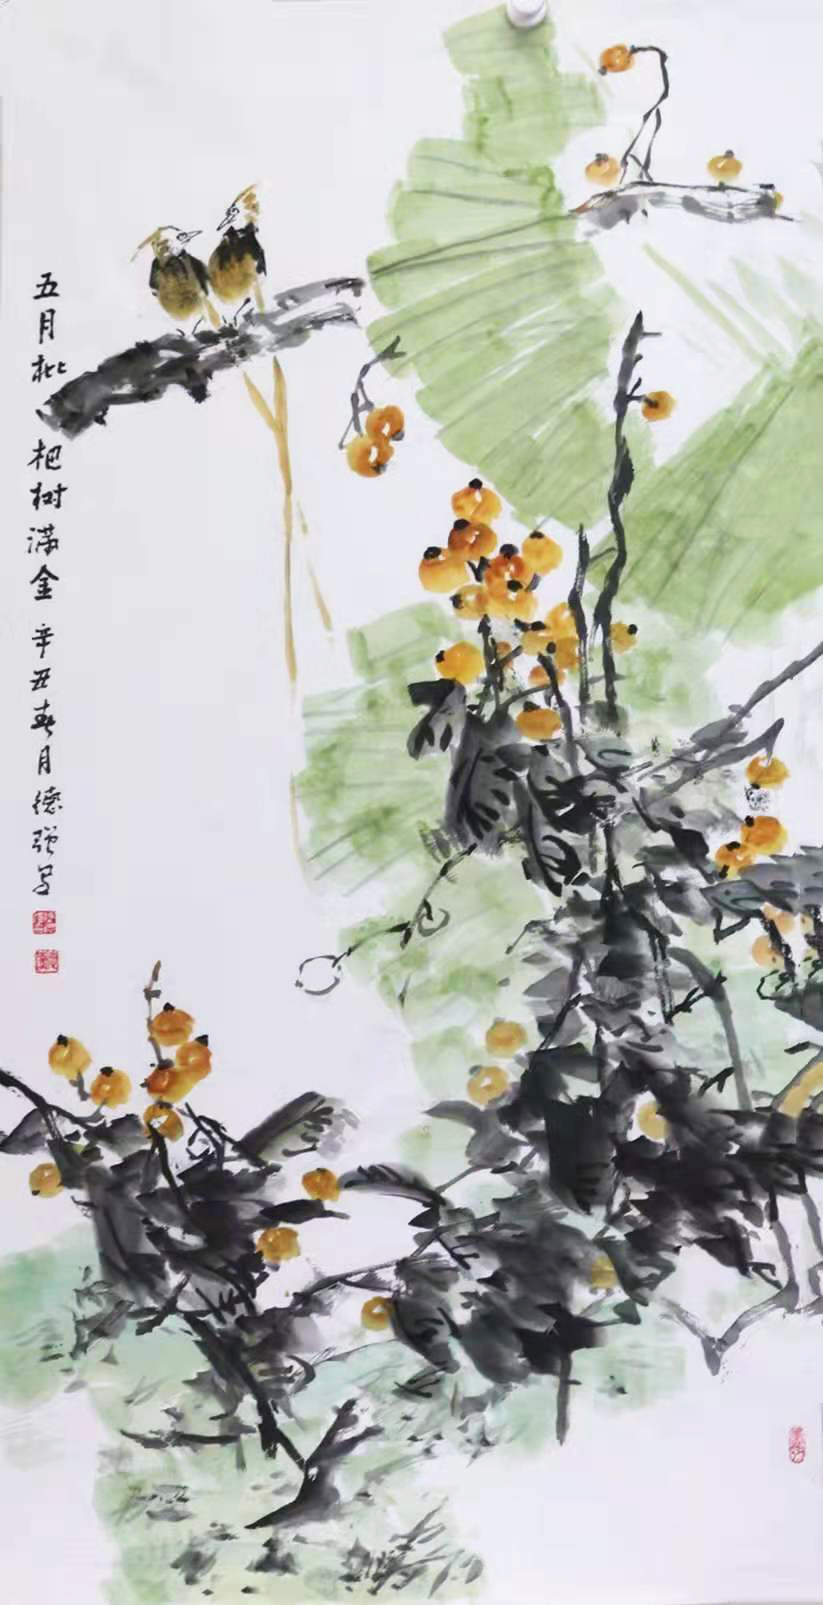 五月枇杷树满金 辛丑春月德强写